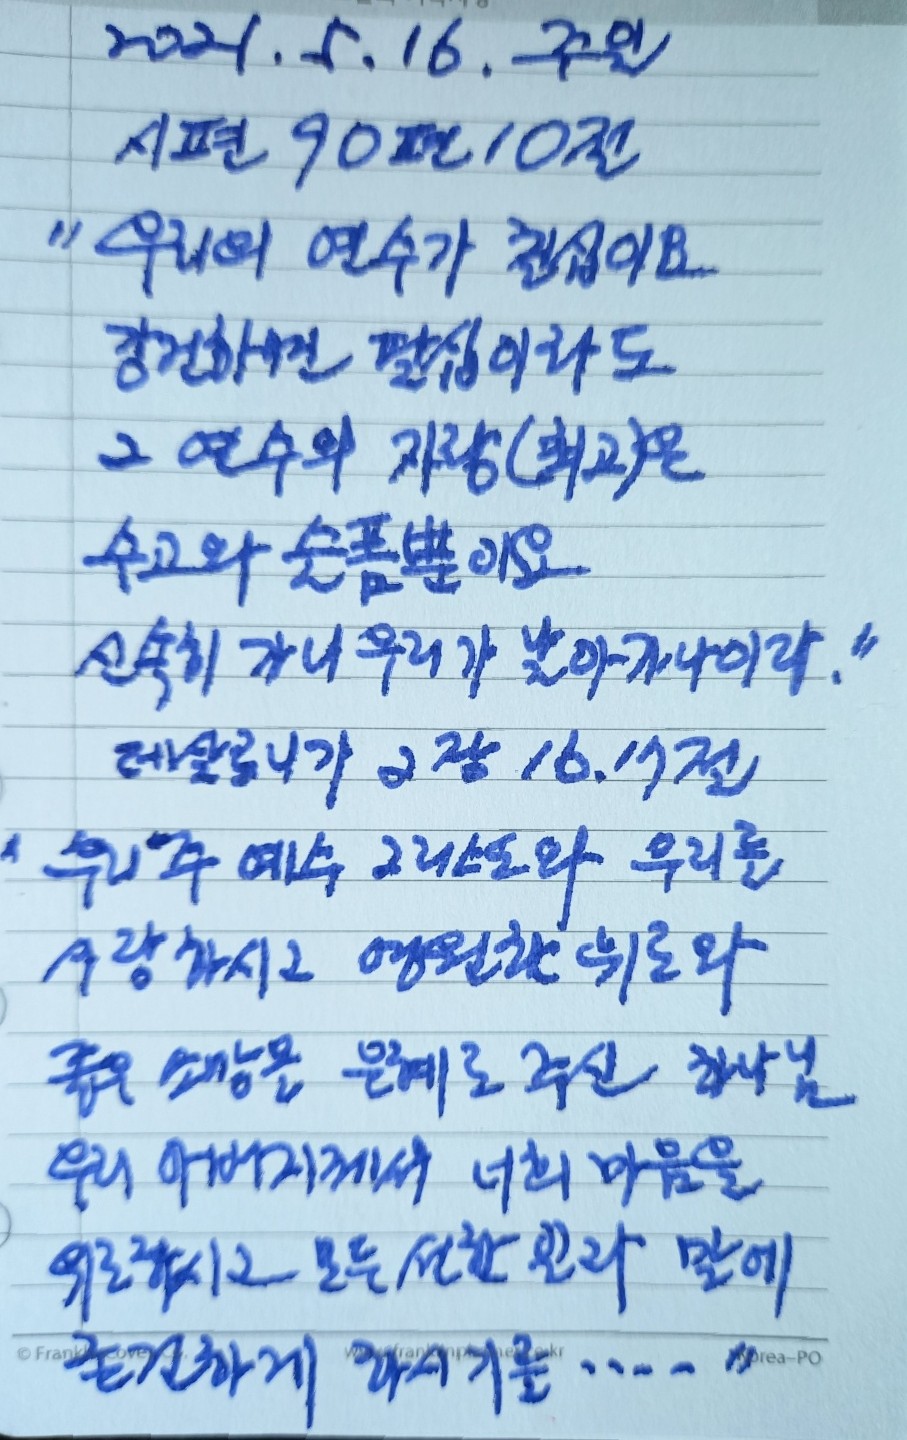 2021. 5. 16. 주일
시편 90편 10절
"우리의 연수가 칠십이요
강건하면 팔십이라도
그 연수의 자랑(최고)은
수고와 슬픔뿐이요
신속히 가니 우리가 날아가나이다."
데살로니가 2장 16. 17절
"우리 주 예수 그리스도와 우리를
사랑하시고 영원한 위로와
좋은 소망을 은혜로 주신 하나님
우리 아버지께서 너희 마음을
위로하시고 모든 선한 일과 말에
굳건하게 하시기를 ····· "
© Franklin Covey Co. Korea-PO